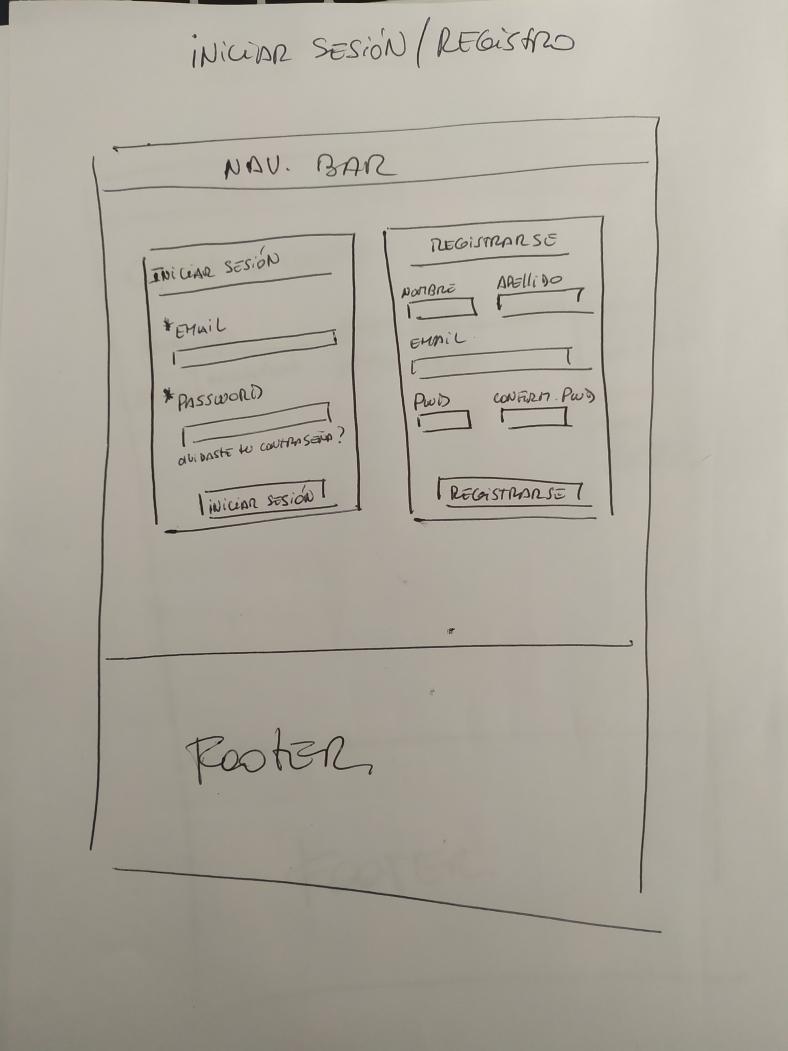 INICIAR SESIÓN / REGISTRO
NAV. BAR
INICIAR SESIÓN
*EMAIL
*PASSWORD
OLVIDASTE tu CONTRASEÑA?
INICIAR SESIÓN
REGISTRARSE
NOMBRE APELLIDO
EMAIL
PWD CONFIRM. PWD
REGISTRARSE
FOOTER
FOOTER